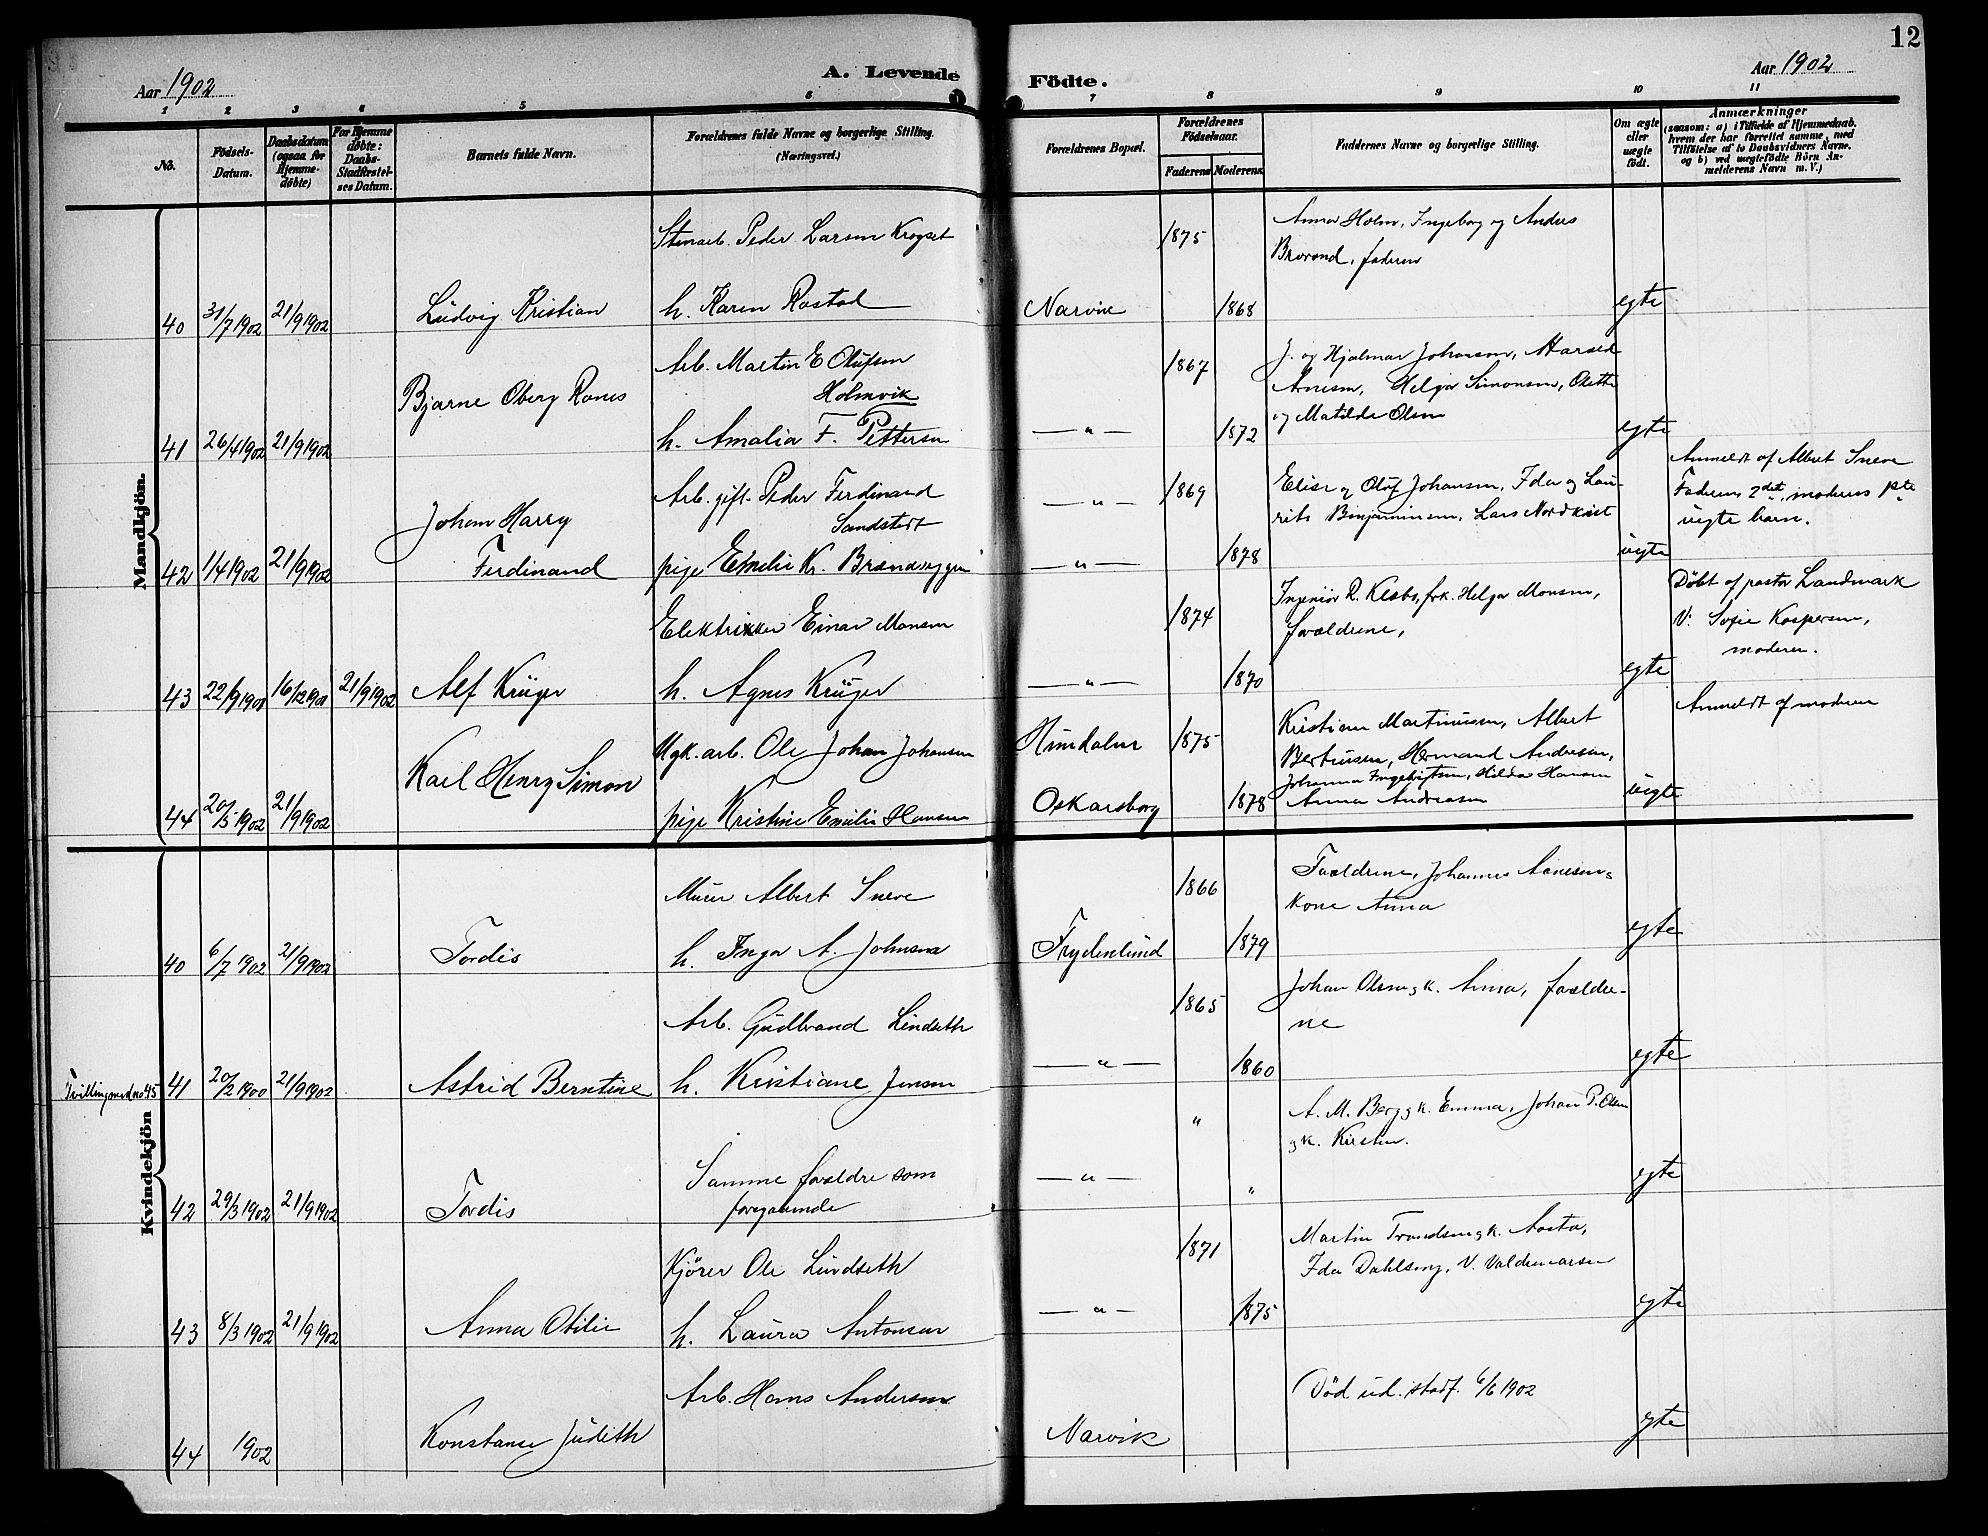 12
Aar 1902
A. Levende
Födte.
Aar 1902
1 2 3 4 5 6 7 8 9 10 11
No.
Födsels-
Datum.
Daabsdatum
(ogsaa for
Hjemme-
døbte)
For Hjemme
døbte:
Daabs-
Stadfæstel-
ses Datum.
Barnets fulde Navn.
Forældrenes fulde Navne og borgerlige Stilling.
(Næringsvei.)
Forældrenes Bopæl.
Forældrenes
Födselsaar.
Faderens
Moderens
Faddernes Navne og borgerlige Stilling.
Om ægte
eller
uægte
født.
Anmærkninger
(saasom: a) i Tilfælde af Hjemmedaab,
hvem der har forrettet samme, med
Tilföielse af to Daabsvidners Navne,
og b) ved uægtefödte Börn An-
melderens Navn m. V.)
Mandkjön.
40 31/7 1902 21/9 1902
Ludvig Kristian
Stenarb. Peder Larsen Krogset
h. Karen Rostad
Narvik
1875
1868
Anna Holm, Ingeborg og Anders
Brovond, faderen
egte
41 26/4 1902 21/9 1902
Bjarne Oberg Rones
Arb. Martin E Olufsen
Holmvik
h. Amalia F. Pettersen
— " —
1867
1872
J. og Hjalmar Johansen,
Anesen, Helga Simonsen, Olette
og Matilde Olsen
egte
42 1/4 1902 21/9 1902
Johan Harry
Ferdinand
Arb. gift. Peder Ferdinand
Sandstedt
pige Emelie Kr.
— " —
— " —
1869
1878
Elise og Oluf Johansen, Ida og Lau-
rits Benjaminsen, Lars Nordkvist
uegte
Anmeldt af Albert Sneve
Faderens 2det, moderens 1ste
uegte barn.
43 22/9 1901 16/12 1901 21/9 1902
Alf Krüger
Elektrikker Einar Monsen
h. Agnes Krüger
— " —
1874
1870
Ingeniör R. frk. Helga Monsen,
forældrene,
egte
Döbt af pastor Landmark
V: Sofie Kaspersen,
moderen.
44 20/5 1902 21/9 1902
Karl Henry Simon
Ugk. arb. Ole Johan Johansen
pige Kristine Emilie Hansen
Hundalen
Oskarsborg
1875
1878
Kristine Martinussen, Albert
Berntussen, Hermand Andresen,
Johanna Ingebrigtsen, Hilda Hansen
Anna Andreasen
uegte
Anmeldt af moderen
Kvindekjön
40 6/7 1902 21/9 1902
Tordis
Murer Albert Sneve
h. Inga A. Johnsen
Frydenlund
1866
1879
Forældrene, Johannes Aanesen og
kone Anna
egte
Tvilling med no 45
41 20/2 1900 21/9 1902
Astrid Berntine
Arb. Gudbrand Lindseth
h. Kristiane Jensen
— " —
1865
1860
Johan Olsen og k. Anna, forældre-
ne
egte
42 29/3 1902 21/9 1902
Tordis
Samme forældre som
foregaaende
— " —
"
"
A. M. Berg og k. Emma, Johan P. Olsen
og k. Kirsten.
egte
43 8/3 1902 21/9 1902
Anna Otilie
Kjörer Ole Lindseth
h. Laura Antonsen
— " —
1871
1875
Martin Trondsen og k. Aasta,
Ida Dahlseng, V. Valdemarsen
egte
44 1902
Konstanse Judith
Arb. Hans Andersen
Narvik
Död ud. stadf. 6/6 1902
egte